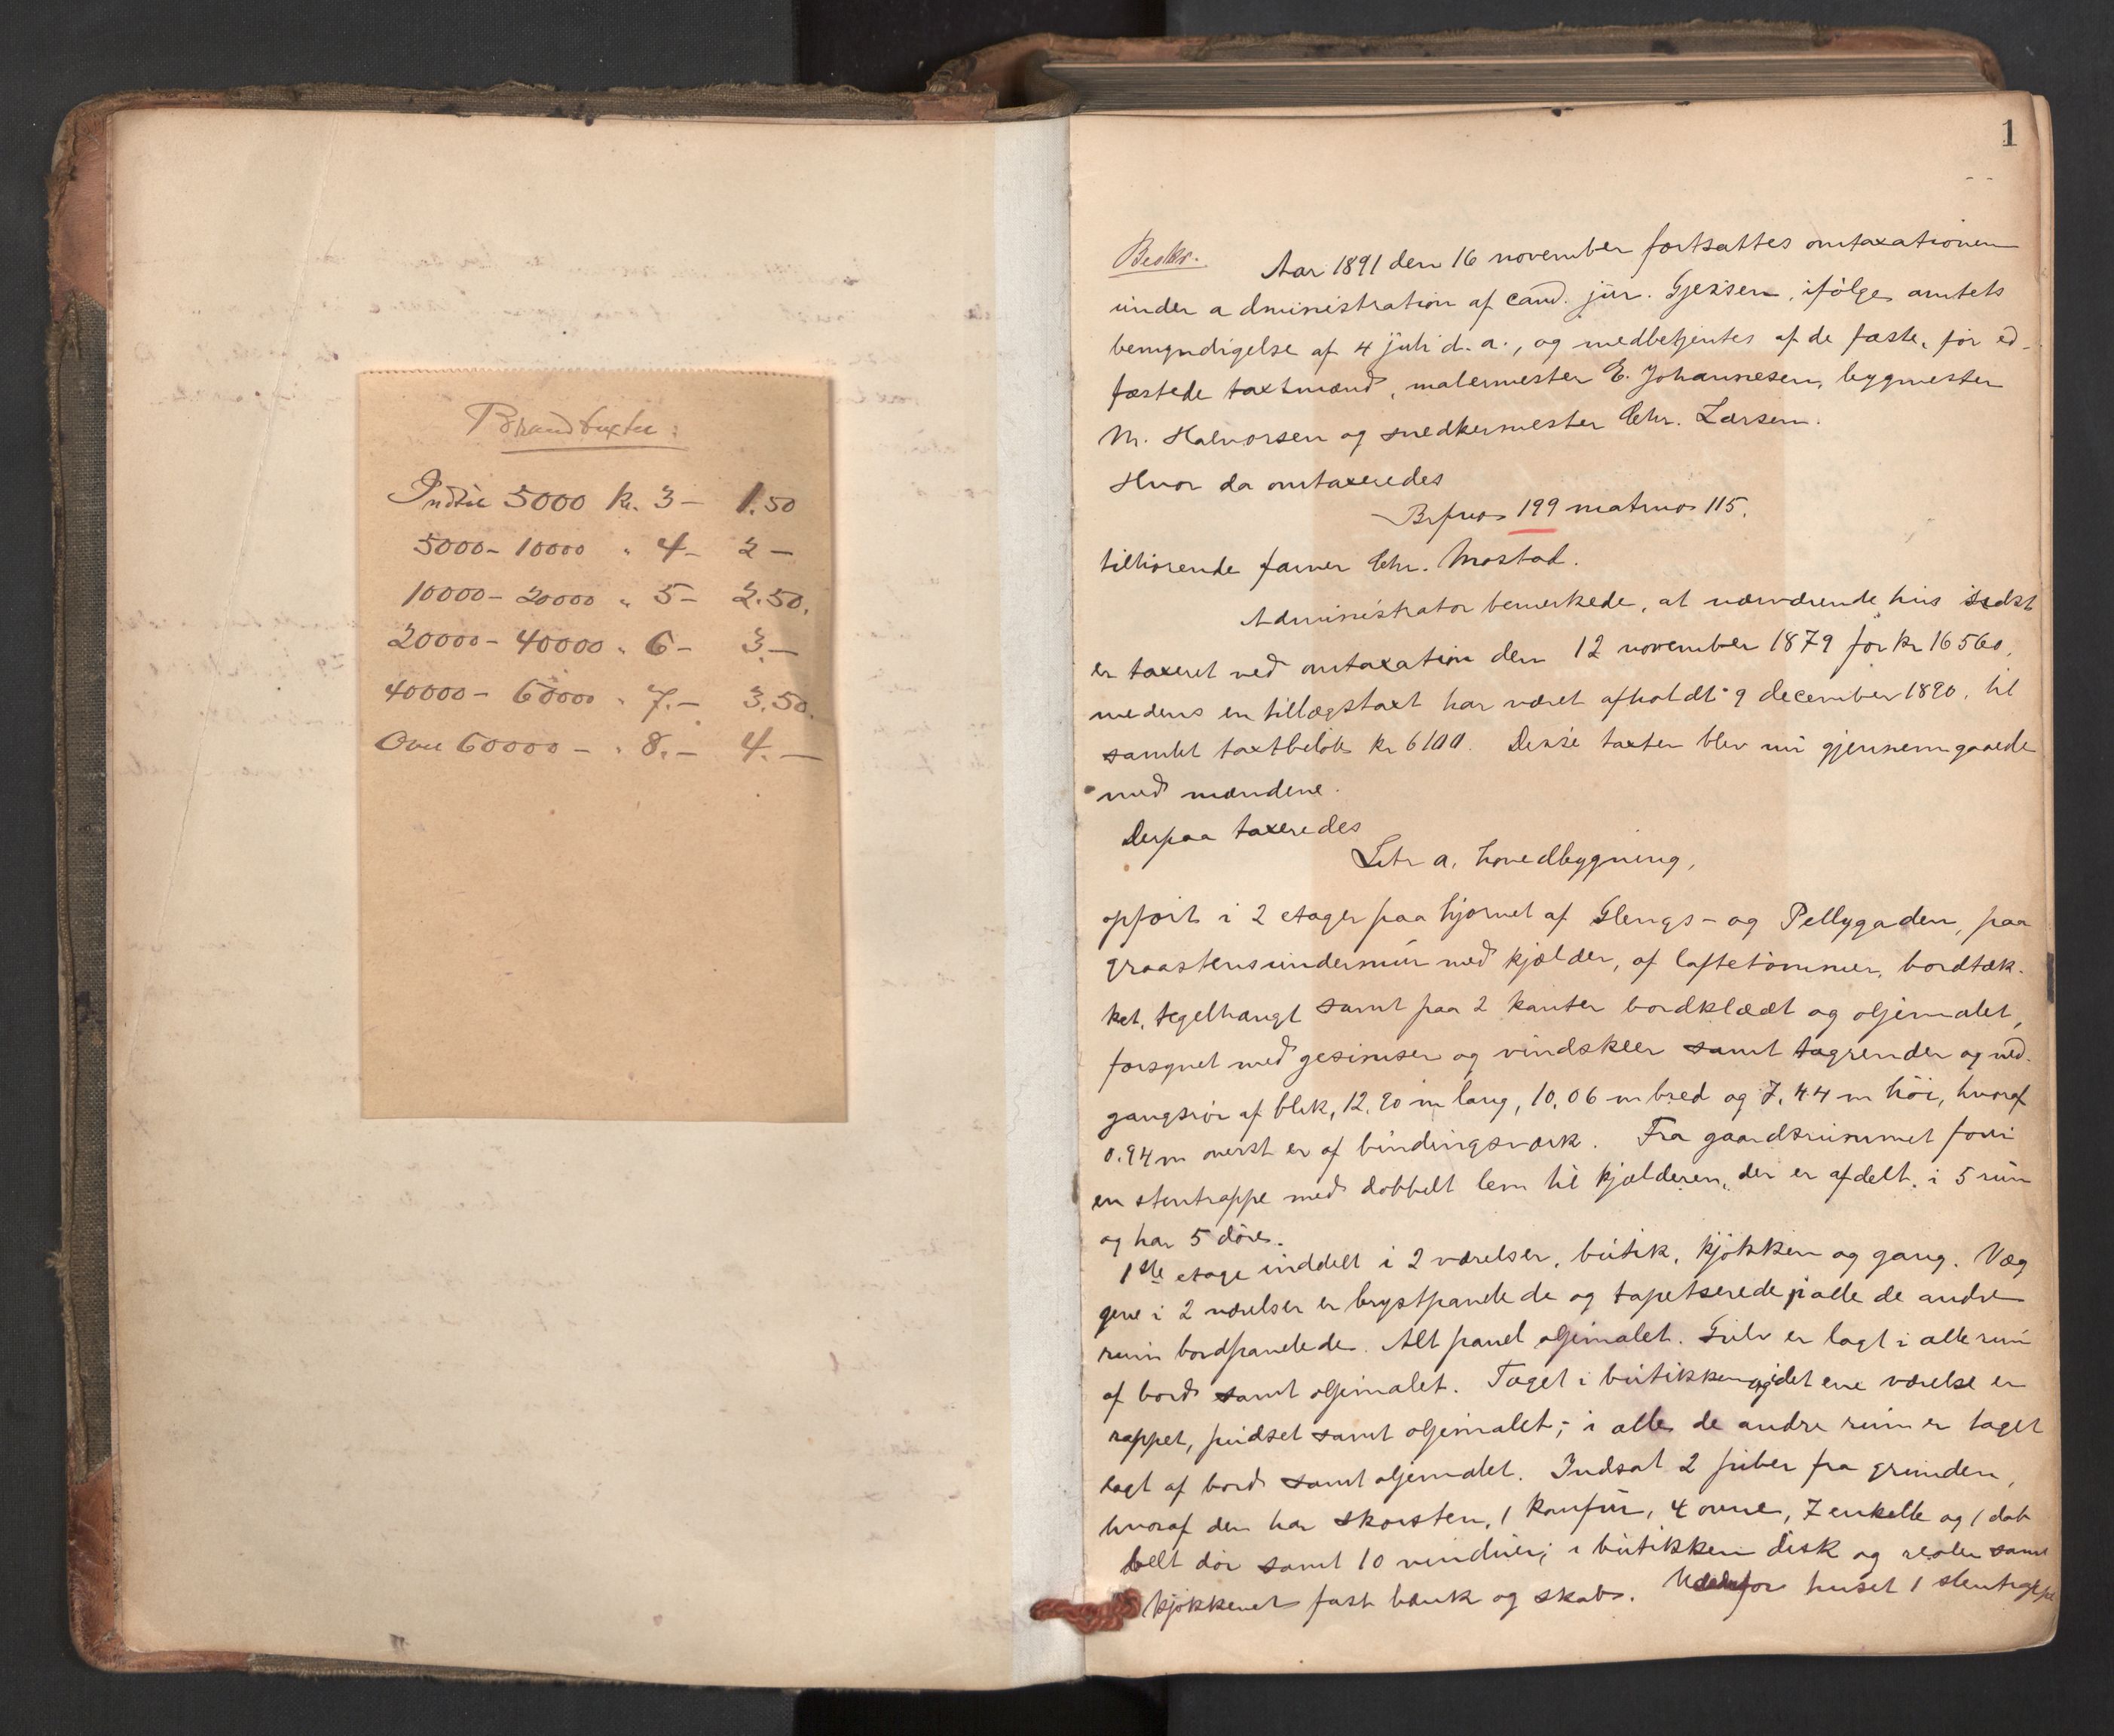 Brandtaxter:
Indtil 5000 kr. 3 – 1.50
5000 – 10000 " 4 – 2 –
10000 – 20000 " 5 – 2.50.
20000 – 40000 " 6 – 3. –
40000 – 60000 " 7. – 3.50.
Over 60000 – " 8. – 4. –
1
Beskr. Aar 1891 den 16 november fortsattes omtaxationen
under administration af cand. jur. Gjessen, ifølge amtets
bemyndigelse af 4 juli d. a., og medbetjentes af de faste, før ed-
fæstede taxtmænd, malermester E. Johannesen, bygmester
M. Halvorsen og snedkermester Chr. Larsen.
Hvor da omtaxeredes
Brfno 199 matrno 115.
tilhörende farver Chr. Mostad.
Administrator bemerkede, at nærværende hus sidst
er taxeret ved omtaxation den 12 november 1879 for kr 16560,
medens en tillægstaxt har været afholdt 9 december 1890, til
samlet taxtbeløb kr 6100. Disse taxter blev nu gjennemgaaede
med mændene.
Derpaa taxeredes
Litr a. hovedbygning,
opført i 2 etager paa hjørnet af Glengs- og Pellygaden, paa
graastensundermur med kjælder, af laftetömmer, bordtæk-
ket, tegelhængt samt paa 2 kanter bordklædt og oljemalet,
forsynet med gesimser og vindskeer samt tagrender og ned-
gangsrör af blik, 12.90 m lang, 10.06 m bred og 7.44 m höi, hvoraf
0.94 m överst er af bindingsværk. Fra gaardsrummet förer
en stentrappe med dobbelt lem til kjælderen, der er afdelt i 5 rum
og har 5 döre.
1ste etage inddelt i 2 værelser, butik, kjökken og gang. Væg
gene i 2 værelser er brystpanelede og tapetserede, i alle de andre
rum bordpanelede. Alt panel oljemalet. Gulv er lagt i alle rum
af bord samt oljemalet. Taget i butikken og i det ene værelse er
rappet, pudset samt oljemalet; i alle de andre rum er taget
lagt af bord samt oljemalet. Indsat 2 piber fra grunden,
hvoraf den har skorsten, 1 komfur, 4 ovne, 7 enkelte og 1 dob
belt dör samt 10 vinduer; i butikken disk og reoler samt
kjökkenet fast bænk og skab. Udenfor huset 1 stentrappe